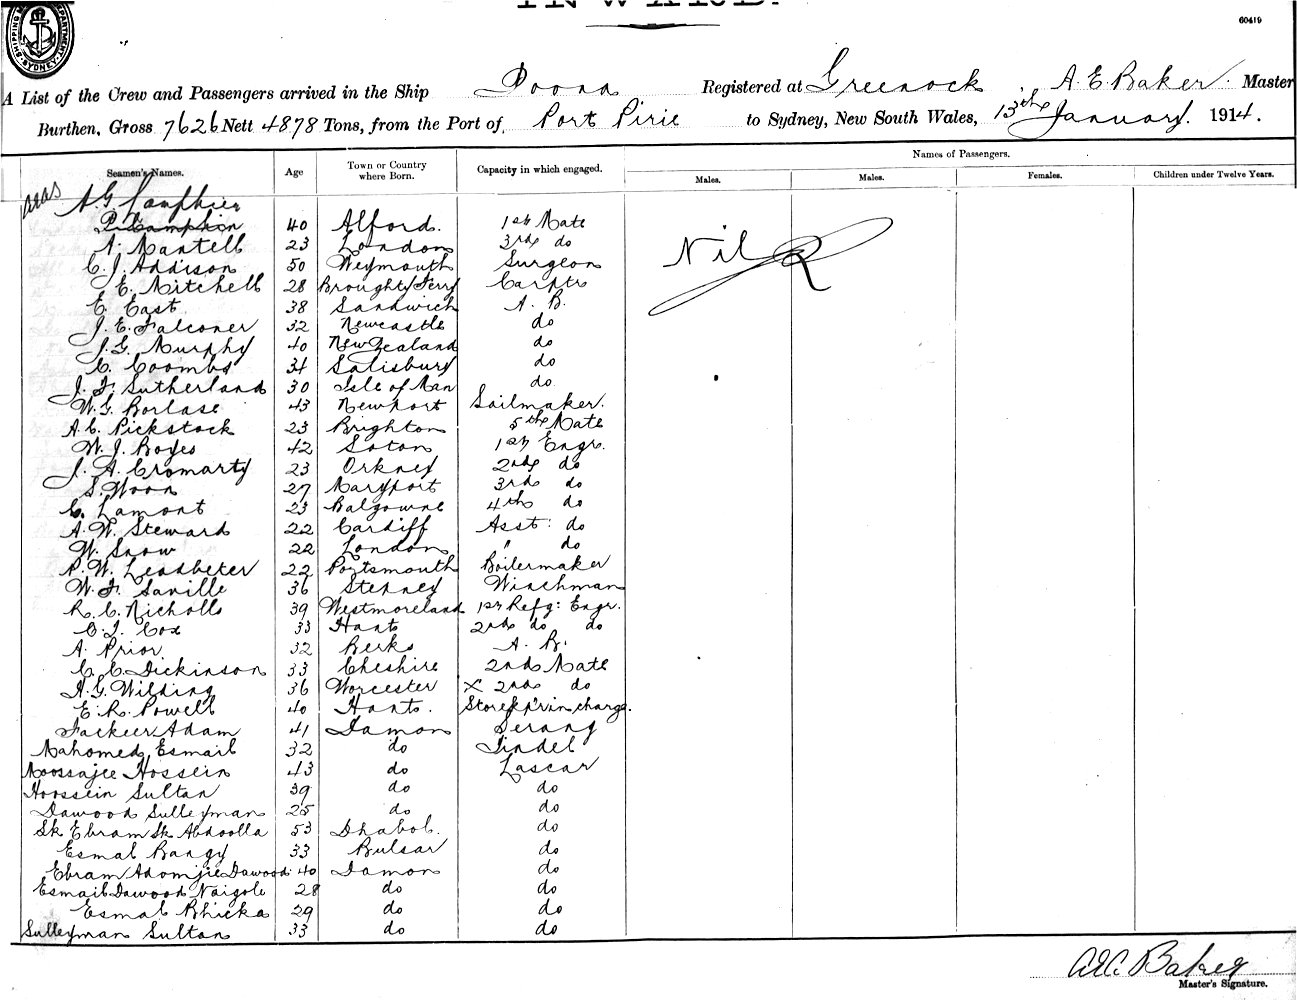 INWARD.
60419
SHIPPING DEPARTMENT SYDNEY
A List of the Crew and Passengers arrived in the Ship Poona Registered at Greenock, A. E. Baker Master
Burthen, Gross 7626 Nett 4878 Tons, from the Port of Port Pirie to Sydney, New South Wales, 13th January. 1914.
Seamen's Names. Age Town or Country where Born. Capacity in which engaged. Names of Passengers.
Males. Males. Females. Children under Twelve Years.
alias A. G. Lamphier
P. Campkin 40 Alford. 1st Mate
A. Mantell 23 London 3rd do
C. J. Addison 50 Weymouth Surgeon Nil
E. Mitchell 28 Broughty Ferry Carptr
E. East 38 Sandwich A. B.
J. E. Falconer 32 Newcastle do
J. G. Murphy 40 New Zealand do
C. Coombs 34 Salisbury do
J. F. Sutherland 30 Isle of Man do
W. G. Borlase 43 Newport Sailmaker.
A. C. Pickstock 23 Brighton 5th Mate
W. J. Boyes 42 Soton 1st Engr.
J. A. Cromarty 23 Orkney 2nd do
S. Moon 27 Maryport 3rd do
C. Lamont 23 Balgowne 4th do
A. W. Steward 22 Cardiff Asst: do
W. Snow 22 London " do
P. W. Leadbeter 22 Portsmouth Boilermaker
W. F. Saville 36 Stepney Winchman
R. C. Nicholls 39 Westmoreland 1st Refg: Engr.
C. J. Cox 33 Hants 2nd do do
A. Prior 32 Berks A. B.
C. C. Dickinson 33 Cheshire 2nd Mate
A. G. Wilding 36 Worcester X 2nd do
E. R. Powell 40 Hants. Storekpr in charge.
Fackeer Adam 41 Damon Serang
Mahomed Esmail 32 do Tindel
Moossajee Hossein 43 do Lascar
Hoossein Sultan 39 do do
Dawood Sulleyman 25 do do
Sk Ebram Sk Abdoolla 53 Dhabol. do
Esmal Bangy 33 Bulsar do
Ebram Adomjie Dawood 40 Damon do
Esmail Dawood Naigole 28 do do
Esmal Bhicka 29 do do
Sulleyman Sultan 33 do do
A. E. Baker
Master's Signature.